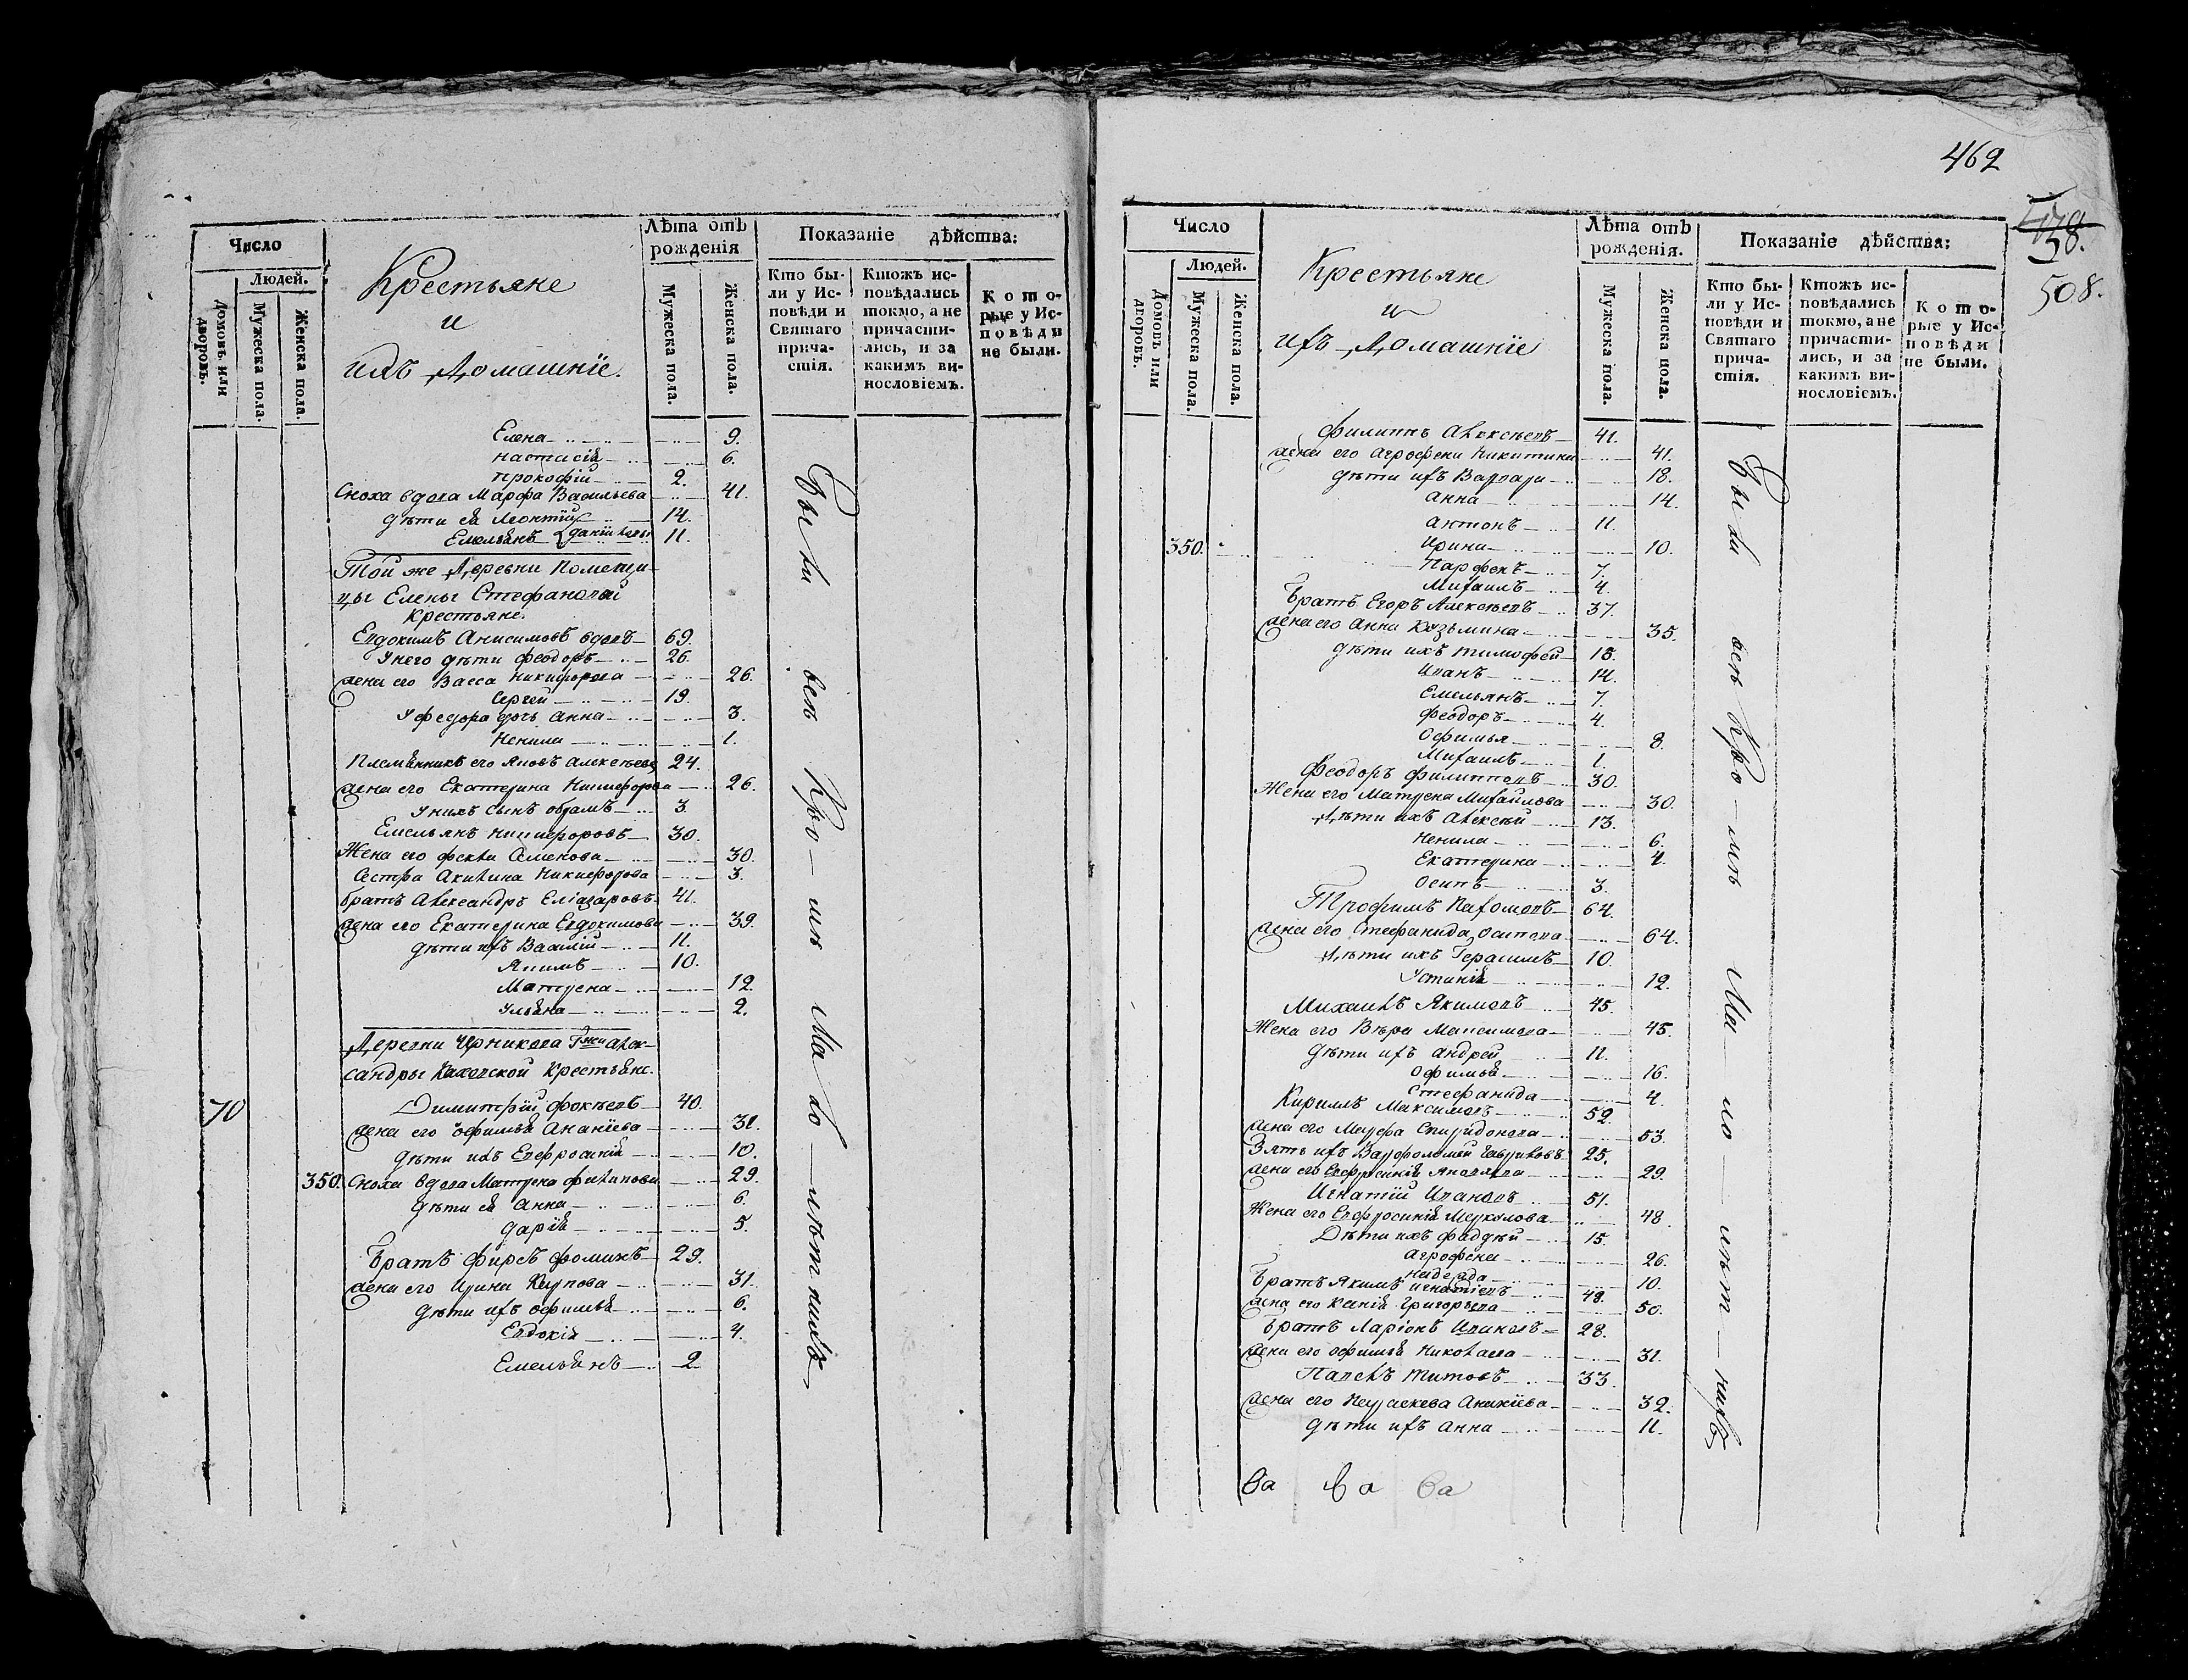 Число
Людей.
Домовъ или дворовъ.
Мужеска пола.
Женска пола.
Крестьяне
и
ихъ Домашніе.
Лѣта отъ
рожденія
Мужеска пола.
Женска пола.
Показаніе дѣйства:
Кто бы-
ли у Ис-
повѣди и
Святаго
прича-
стія.
Ктожъ ис-
повѣдались
токмо, а не
причасти-
лись, и за
какимъ ви-
нословіемъ.
Кото-
рые у Ис-
повѣди
не были.
Елена 9.
Настасія 6.
Прокофій 2.
Сноха вдова Марфа Васильева 41.
дѣти ея Леонтій 14.
Емельянъ Даніиловы 11.
Той же Деревни Помѣщи-
цы Елены Стефановой
Крестьяне.
Евдокимъ Анисимовъ вдовъ 69.
У него дѣти Феодоръ 26.
жена его Васса Никифорова 26.
Сергей 19.
У Федора дочь Анна 3.
Ненила 1.
Племянникъ его Яковъ Алексеевъ 24.
жена его Екатерина Никифорова 26.
У нихъ сынъ 3
Емельянъ Никифоровъ 30.
Жена его Фекла Семенова 30.
Сестра Акилина Никифорова 3.
братъ Александръ Еліазаровъ 41.
жена его Екатерина Евдокимова 39.
дѣти ихъ Василій 11.
Якимъ 10.
Матрена 12.
Ульяна 2.
Деревни Черникова Гжи Алек-
сандры Каховской Крестьяне.
70
Димитрій Фокѣевъ 40.
жена его Офимья Ананіева 31.
дѣти ихъ Евфросинія 10.
350. Сноха вдова Матрена Филипова 29.
дѣти ея Анна 6.
Дарія 5.
Братъ Фирсъ Фоминъ 29.
жена его Ирина Карпова 31.
дѣти ихъ Офимья 6.
Евдокія 4.
Емельянъ 2
Были всѣ Кро-мѣ Мало-лѣтнихъ
462
58.
508.
Число
Людей.
Домовъ или дворовъ.
Мужеска пола.
Женска пола.
Крестьяне
и
ихъ Домашніе
Лѣта отъ
рожденія.
Мужеска пола.
Женска пола.
Показаніе дѣйства:
Кто бы-
ли у Ис-
повѣди и
Святаго
прича-
стія.
Ктожъ ис-
повѣдались
токмо, а не
причасти-
лись, и за
какимъ ви-
нословіемъ.
Кото-
рые у Ис-
повѣди
не были.
Филиппъ Алексѣевъ 41.
жена его Агрофена Никитина 41.
дѣти ихъ Варвара 18.
Анна 14.
Антонъ 11.
350. Ирина 10.
Парфенъ 7.
Михаилъ 4.
Братъ Егоръ Алексѣевъ 37.
жена его Анна Козьмина 35.
дѣти ихъ Тимофей 15.
Иванъ 14.
Емельянъ 7.
Феодоръ 4.
Офимья 8.
Михаилъ 1.
Феодоръ Филипповъ 30.
Жена его Матрена Михайлова 30.
Дѣти ихъ Алексѣй 13.
Ненила 6.
Екатерина 4.
Осипъ 3.
Трофимъ Пахомовъ 64.
жена его Стефанида Осипова 64.
Дѣти ихъ Герасимъ 10.
Устинія 12.
Михаилъ Якимовъ 45.
Жена его Вѣра Максимова 45.
дѣти ихъ Андрей 11.
Офимья 16.
Стефанида 4.
Кириллъ Максимовъ 52.
жена его Марфа Спиридонова 53.
Зять ихъ Варфоломей Гавриловъ 25.
жена его Евфросинія Яковлева 29.
Игнатій Ивановъ 51.
Жена его Евфросинія Меркулова 48.
Дѣти ихъ Фаддѣй 15.
Агрофена 26.
Надежда 10.
Братъ Якимъ Игнатіевъ 48.
жена его Ксенія Григорьева 50.
Братъ Ларіонъ Ивановъ 28.
жена его Офимья Николаева 31.
Павелъ Титовъ 33.
жена его Параскева Аникіева 32.
дѣти ихъ Анна 11.
Были всѣ Кро-мѣ Ма-ло-лѣт-нихъ
ва ва ва